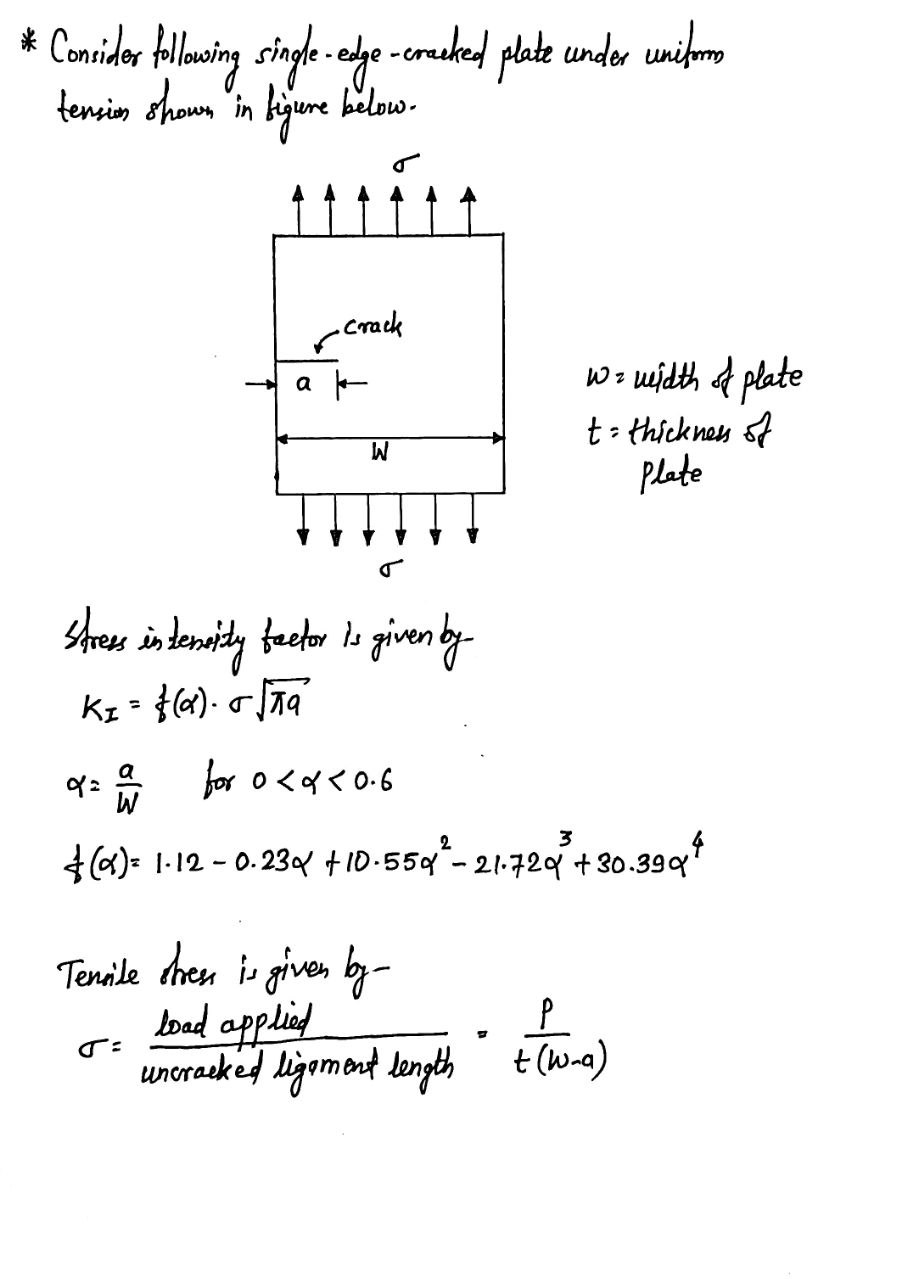 * Consider following single-edge-cracked plate under uniform
tension shown in figure below.
σ
crack
a
W
W = width of plate
t = thickness of
plate
σ
Stress intensity factor is given by-
K_I = f(α). σ√πa
α = a/W for 0 < α < 0.6
f(α) = 1.12 - 0.23α + 10.55α² - 21.72α³ + 30.39α⁴
Tensile stress is given by-
σ = load applied / uncracked ligament length = P / t(W-a)